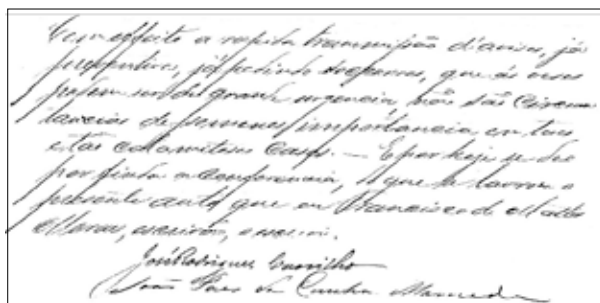 Com effeito a rapida transmissão d'avisos, já
preventivos, já pedindo soccorros, que ás vezes
podem ser de grande urgencia, não são circums
tancias de somenos importancia em taes
e tão calamitosos casos. — E por hoje se deu
por finda a conferencia, de que se lavrou o
presente auto que eu Francisco de Mattos
escrivão, o escrevi.
José Rodrigues
João da Cunha